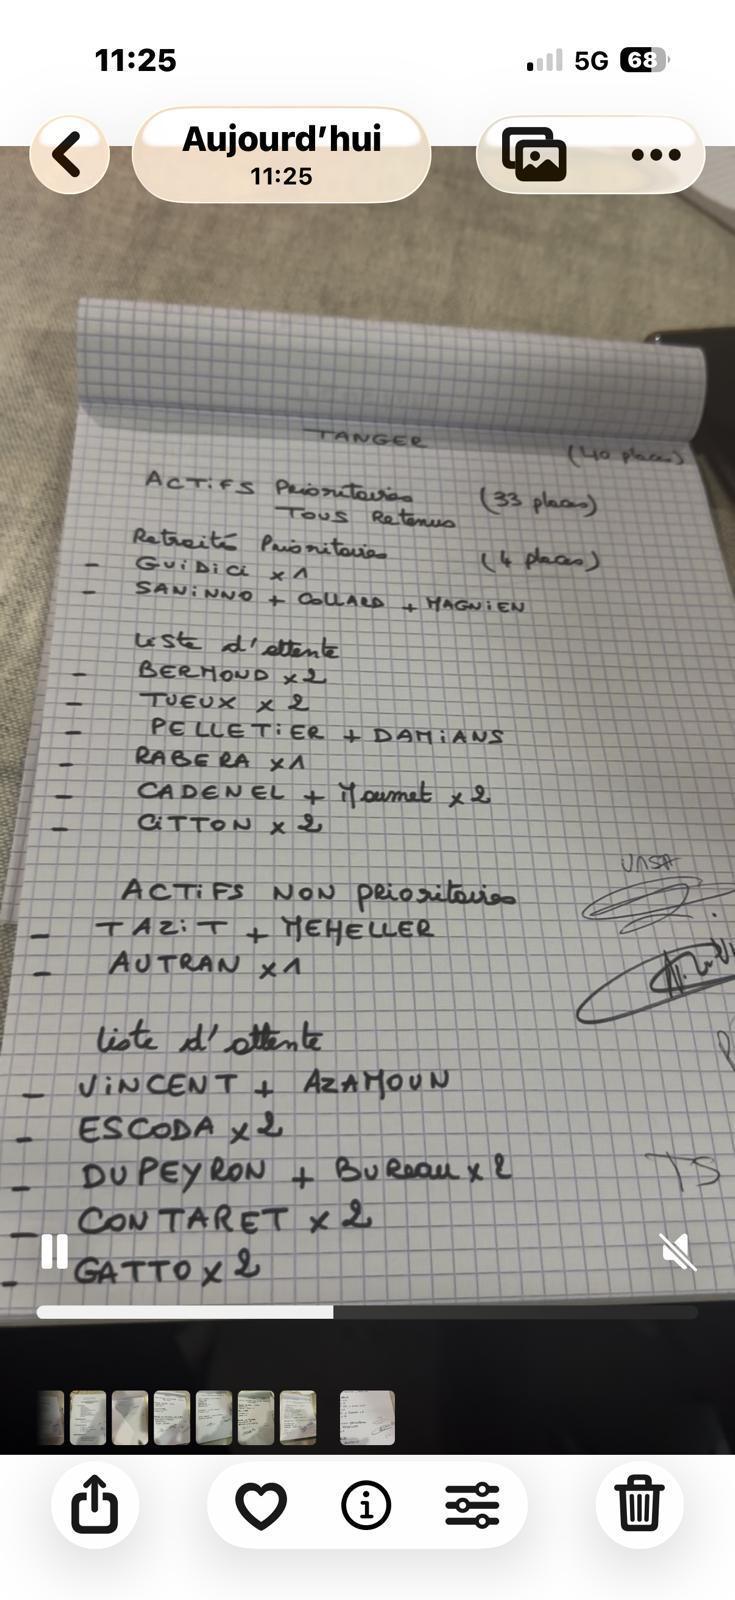 11:25
5G 68
Aujourd'hui
11:25
TANGER (40 places)
ACTiFS Prioritaires (33 places)
TOUS Retenus
Retraités Prioritaires (4 places)
- GUiDiCi x1
- SANiNNO + COLLARD + MAGNiEN
Liste d'attente
- BERMOND x2
- TUEUX x 2
- PELLETiER + DAMiANS
- RABERA x1
- CADENEL + Moumet x 2
- CiTTON x 2
UNSA
ACTiFS NON prioritaires
- TAZiT + MEHELLER
- AUTRAN x1
liste d'attente
- ViNCENT + AZAMOUN
- ESCODA x 2
- DUPEYRON + BUReau x 2
TS
- CONTARET x 2
- GATTO x 2